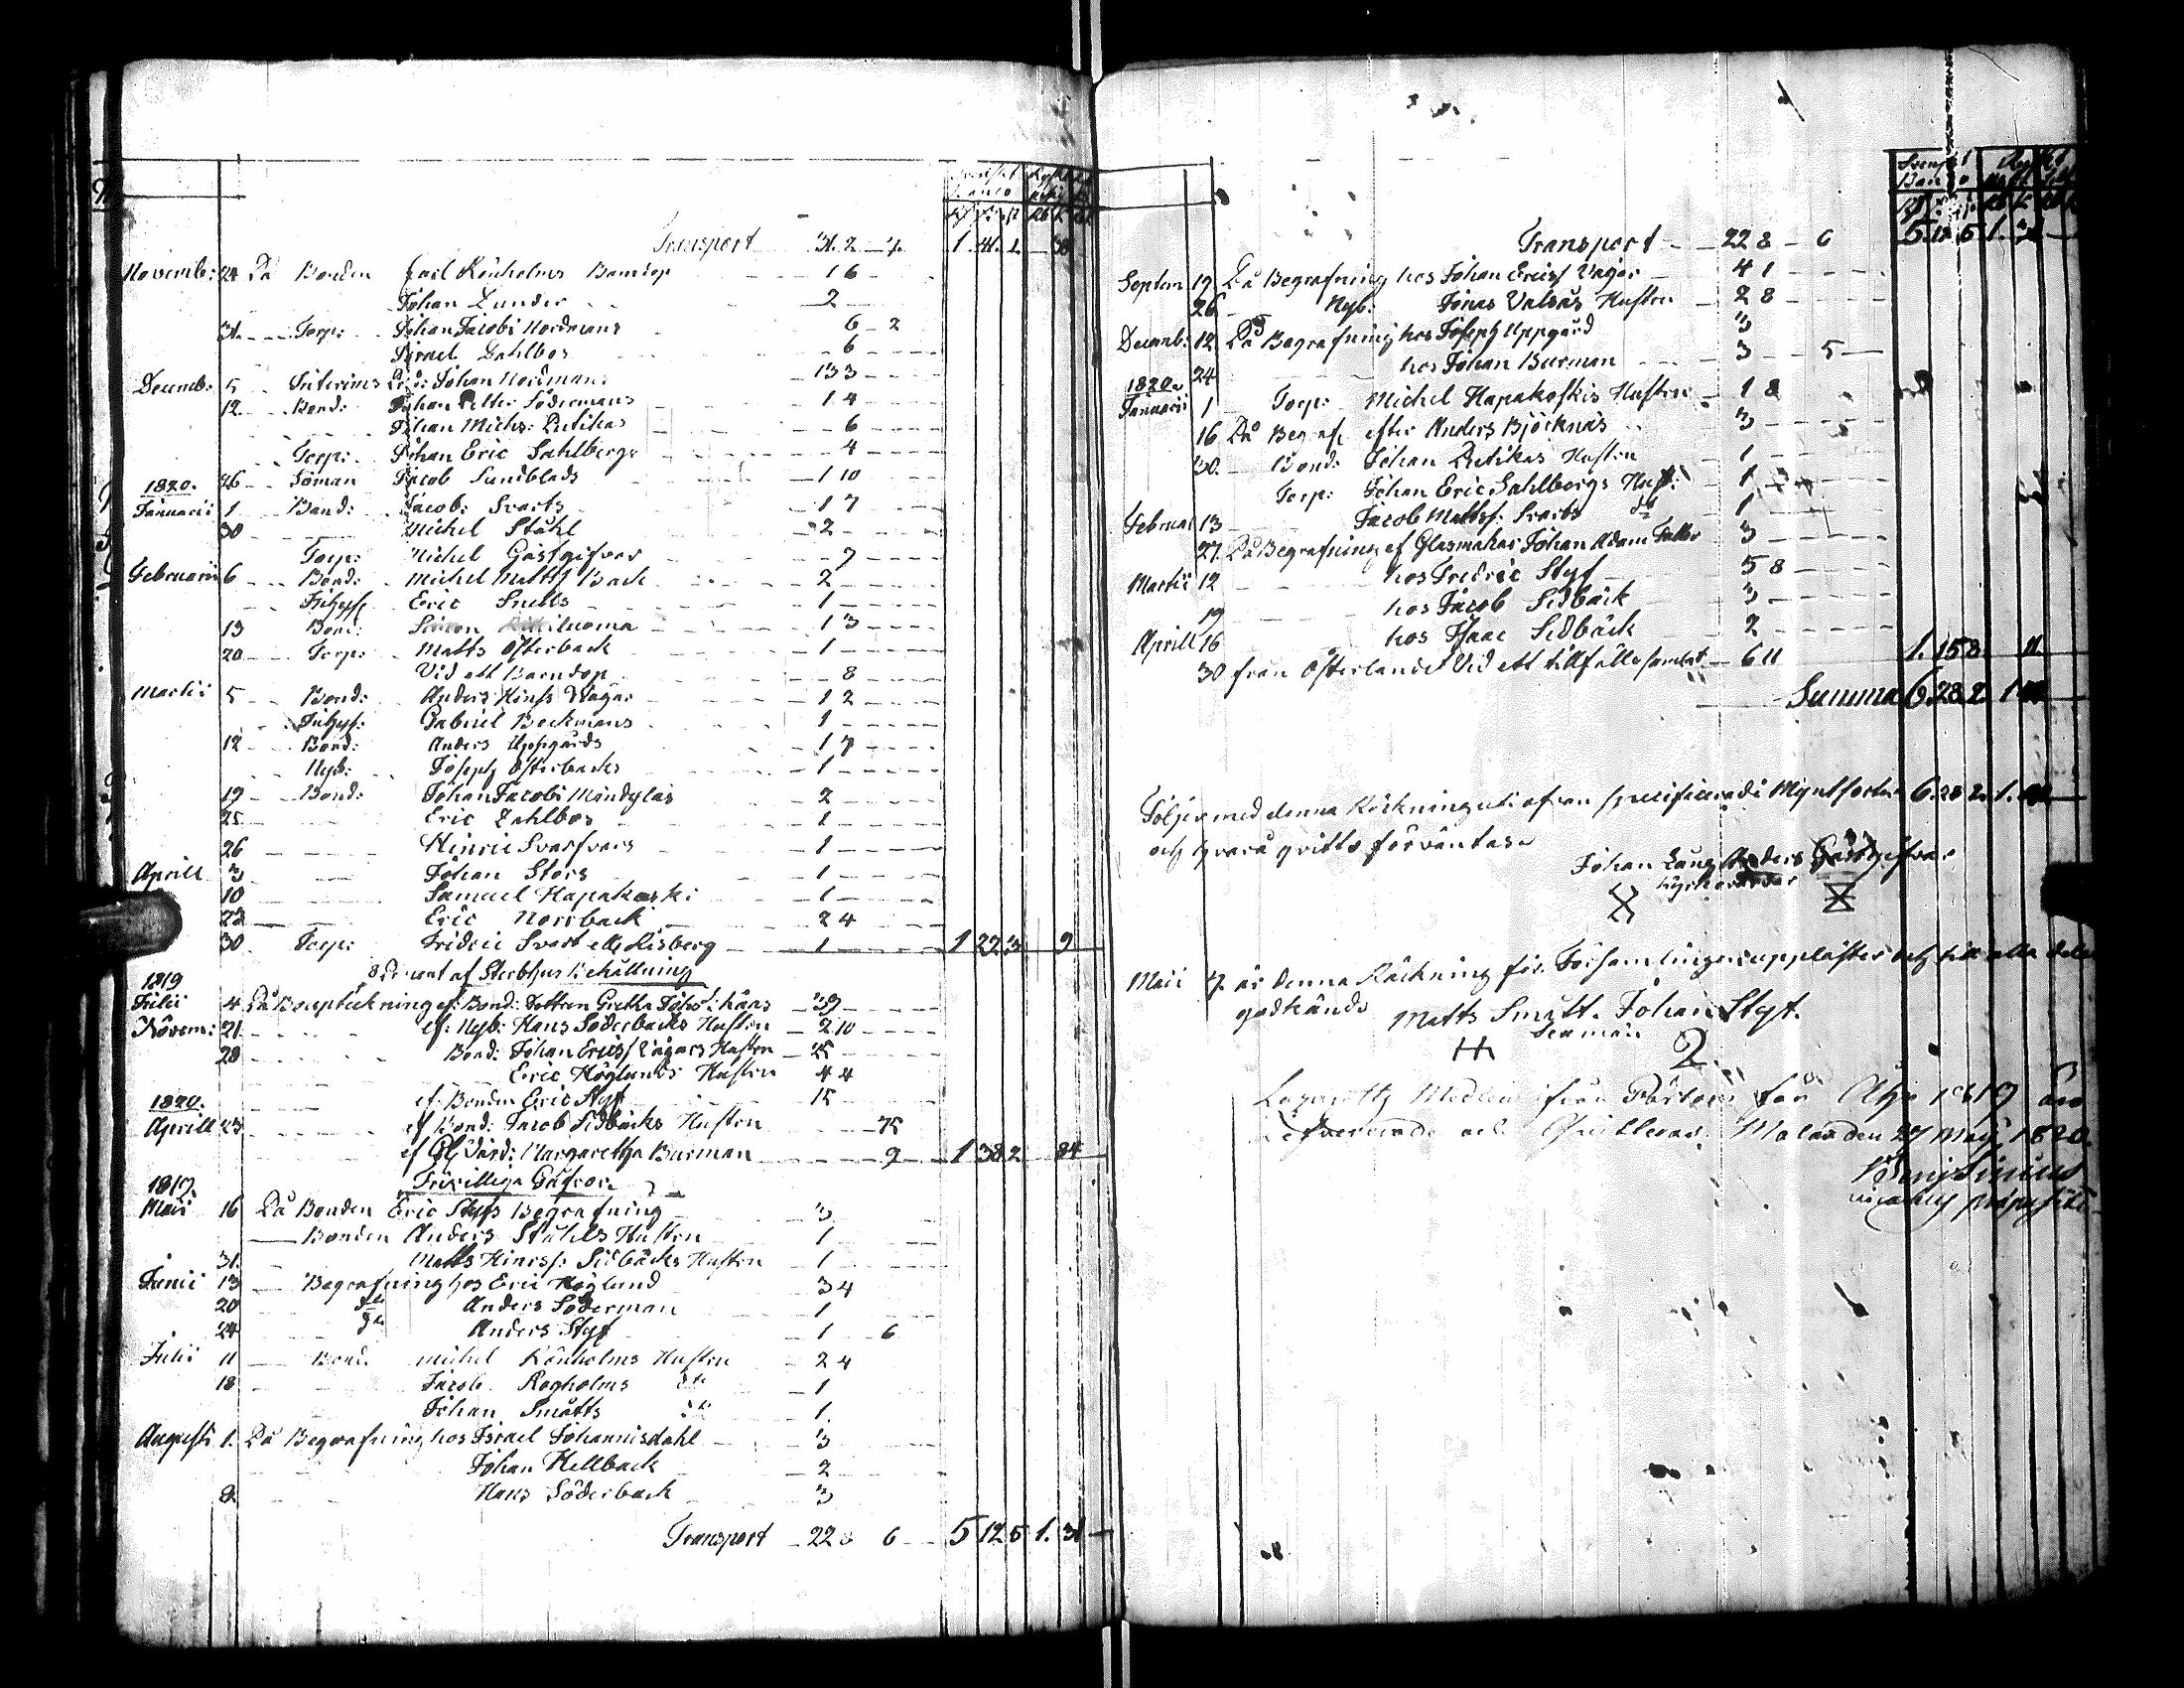 Transport 31. 2 7. 1 41. 1 30
Novemb: 24 På Bonden Carl Rönholms Barndop 1 6
Johan Lunder 2
31. Torp: Johan Jacobs Nordmans 6 2
Israel Dahlbos 6
Decemb: 5 Interims Johan Nordmans 13 3
12. Bond: Johan Petter Södermans 1 4
Johan Michs: Lutikas 6
Torp: Johan Eric Sahlbergs 4
1820. 26 Soman Jacob Sundblads 1 10
Januarii 1 Bond: Jacob: Svarts 1 7
30 Michel Ståhl 2
Torp: Michel Gästgifvar 7
Februarii 6 Bond: Michel Mattss Back 2
Eric Snells 1
13 Bond: Simon 1 3
20 Torp: Matts Österback 1
Vid ett Barndop 8
Martii 5 Bond: Anders Hinss Wägar 1 2
Gabriel Beckmans 1
12 Bond: Anders Uppgårds 1 7
Nyb: Joseph Österbacks 1
19 Bond: Johan Jacobs Mändylas 2
25 Eric Dahlbos 1
26 Hinric Svarfvars 1
Aprill 3 Johan Stors 1
10 Samuel Hapakoski 1
23 Eric Norrback 2 4
30 Torp: Fridric Svart ell. Risberg 1 1 22 3 9
8 Procent af Sterbhus Behållning
1819
Julii 4 På Bouptekning ef: Bond: Dottren Greta Johs: Kaas 39
Novem: 21 ef: Nyb: Hans Söderbacks Hustru 2 10
28 Bond: Johan Ericss Vägars Hustru 25
Eric Höglunds Hustru 4 4
1820. ef: Bonden Eric Styf 15
Aprill 23 ef Bond: Jacob Sidbäcks Hustru 75
ef Margaretha Burman 9 1 38 2 84
1819. Frivilliga Gåfvor
Maii 16 På Bonden Eric Styfs Begrafning 3
Bonden Anders Ståhls Hustru 1
31. Matts Hinrss: Sidbäcks Hustru 1
Junii 13 Begrafning hos Eric Höglund 3 4
20 do Anders Söderman 1
24 do Anders Styf 1 6
Julii 11 Bond. Michel Rönholms Hustru 2 4
18 Jacob Rogholms do 1
Johan Smätts do 1.
Augusti 1. På Begrafning hos Israel Johannisdahl 3
Johan Kellback 2
8 Hans Söderback 3
Transport 22 8 6 5 12 5 1. 31
Transport 22 8 6 5. 12 5 1. 31
Septem 19 På Begrafning hos Johan Ericss Vägar 4 1
26 Nyb: Jonas Valsäs Hustru 2 8
Decemb: 12 På Begrafning hos Joseph Uppgård 3
24 hos Johan Burman 3 5
1820.
Januarii 1 Torp: Michel Hapakoskis Hustru 1 8
16 På Begraf. efter Anders Björknäs 3
30. Bond: Johan Lutikas Hustru 1
Torp: Johan Eric Sahlbergs Hust: 1
Februar 13 Jacob Mattss: Svarts do 1
27. På Begrafning ef Glasmakar Johan Adam Falk 3
Martii 12 hos Fredric Styf 5 8
19 hos Jacob Sidbäck 3
Aprill 16 hos Isaac Sidbäck 2
30 från Österlandet vid ett tillfälle samlat 6 11 1. 15 8 11
Summa 6. 28 2 1
Följer med denna Räkning uti ofvan specificerade Myntsorter 6. 28 2. 1.
och hvarå qvitto förväntas
Johan Lång Anders Gästgifvar
kyrkovärdar
Maii 7 är denna Räkning för Församlingen uppläster och till alla delar
godkänds Matts Smätt. Johan Styf.
Sexmän
Lazaretts Medlen ifrån Pörtom för År 1819 äro
Lefvererade och Qvitteras. Malax den 27 Maij 1820.